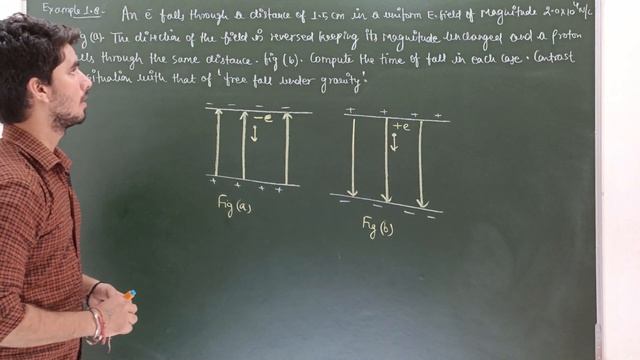 Example 1.8 An e̅ falls through a distance of 1.5 cm in a uniform E. field of magnitude 2.0×10⁴ N/C
Fig (a). The direction of the field is reversed keeping its magnitude unchanged and a proton
falls through the same distance. fig (b). Compute the time of fall in each case. Contrast
situation with that of 'free fall under gravity'.
− − − −
+ + + +
−e
+e
+ + + +
− − − −
Fig (a)
Fig (b)